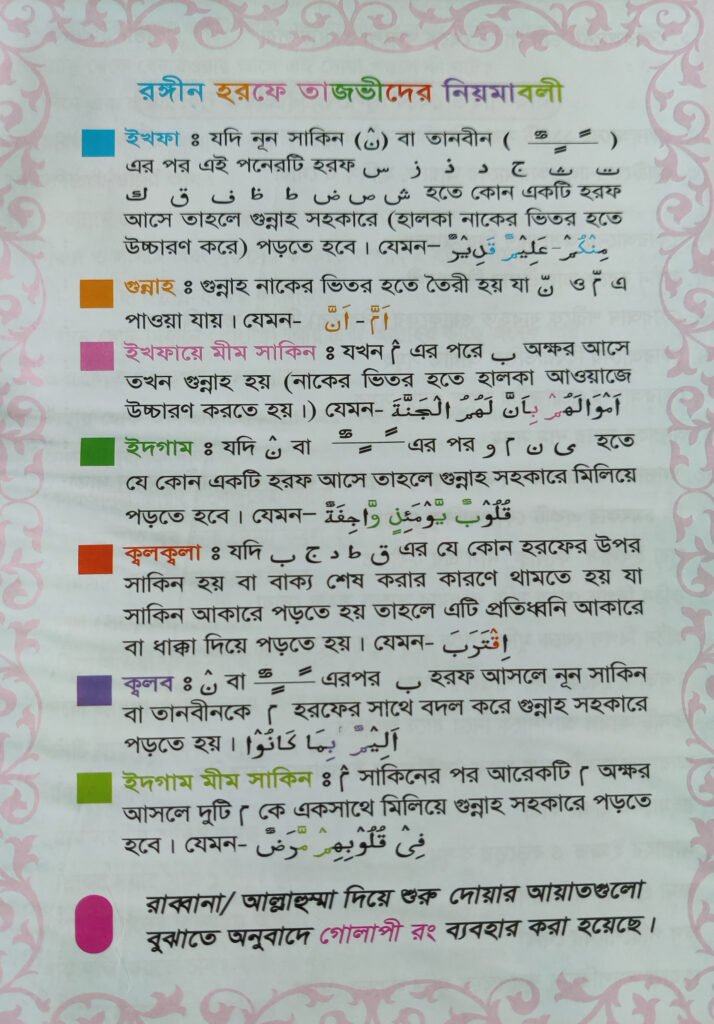 রঙ্গীন হরফে তাজভীদের নিয়মাবলী
ইখফা ঃ যদি নূন সাকিন (نْ) বা তানবীন ( ــًــٍــٌ )
এর পর এই পনেরটি হরফ ت ث ج د ذ ز س
ش ص ض ط ظ ف ق ك হতে কোন একটি হরফ
আসে তাহলে গুন্নাহ সহকারে (হালকা নাকের ভিতর হতে
উচ্চারণ করে) পড়তে হবে। যেমন– مِنْكُمْ - عَلِيْمٌ قَدِيْرٌ
গুন্নাহ ঃ গুন্নাহ নাকের ভিতর হতে তৈরী হয় যা نّ ও مّ এ
পাওয়া যায়। যেমন- اَمَّ - اَنَّ
ইখফায়ে মীম সাকিন ঃ যখন مْ এর পরে ب অক্ষর আসে
তখন গুন্নাহ হয় (নাকের ভিতর হতে হালকা আওয়াজে
উচ্চারণ করতে হয়।) যেমন- اَمْوَالَهُمْ بِاَنَّ لَهُمُ الْجَنَّةَ
ইদগাম ঃ যদি نْ বা ــًــٍــٌ এর পর ى ن م و হতে
যে কোন একটি হরফ আসে তাহলে গুন্নাহ সহকারে মিলিয়ে
পড়তে হবে। যেমন– قُلُوْبٌ يَّوْمَئِذٍ وَّاجِفَةٌ
ক্বলক্বলা ঃ যদি ق ط د ج ب এর যে কোন হরফের উপর
সাকিন হয় বা বাক্য শেষ করার কারণে থামতে হয় যা
সাকিন আকারে পড়তে হয় তাহলে এটি প্রতিধ্বনি আকারে
বা ধাক্কা দিয়ে পড়তে হয়। যেমন- اِقْتَرَبَ
ক্বলব ঃ نْ বা ــًــٍــٌ এরপর ب হরফ আসলে নূন সাকিন
বা তানবীনকে م হরফের সাথে বদল করে গুন্নাহ সহকারে
পড়তে হয়। اَلِيْمٌۢ بِمَا كَانُوْا
ইদগাম মীম সাকিন ঃ مْ সাকিনের পর আরেকটি م অক্ষর
আসলে দুটি م কে একসাথে মিলিয়ে গুন্নাহ সহকারে পড়তে
হবে। যেমন- فِىْ قُلُوْبِهِمْ مَّرَضٌ
রাব্বানা/ আল্লাহুম্মা দিয়ে শুরু দোয়ার আয়াতগুলো
বুঝাতে অনুবাদে গোলাপী রং ব্যবহার করা হয়েছে।